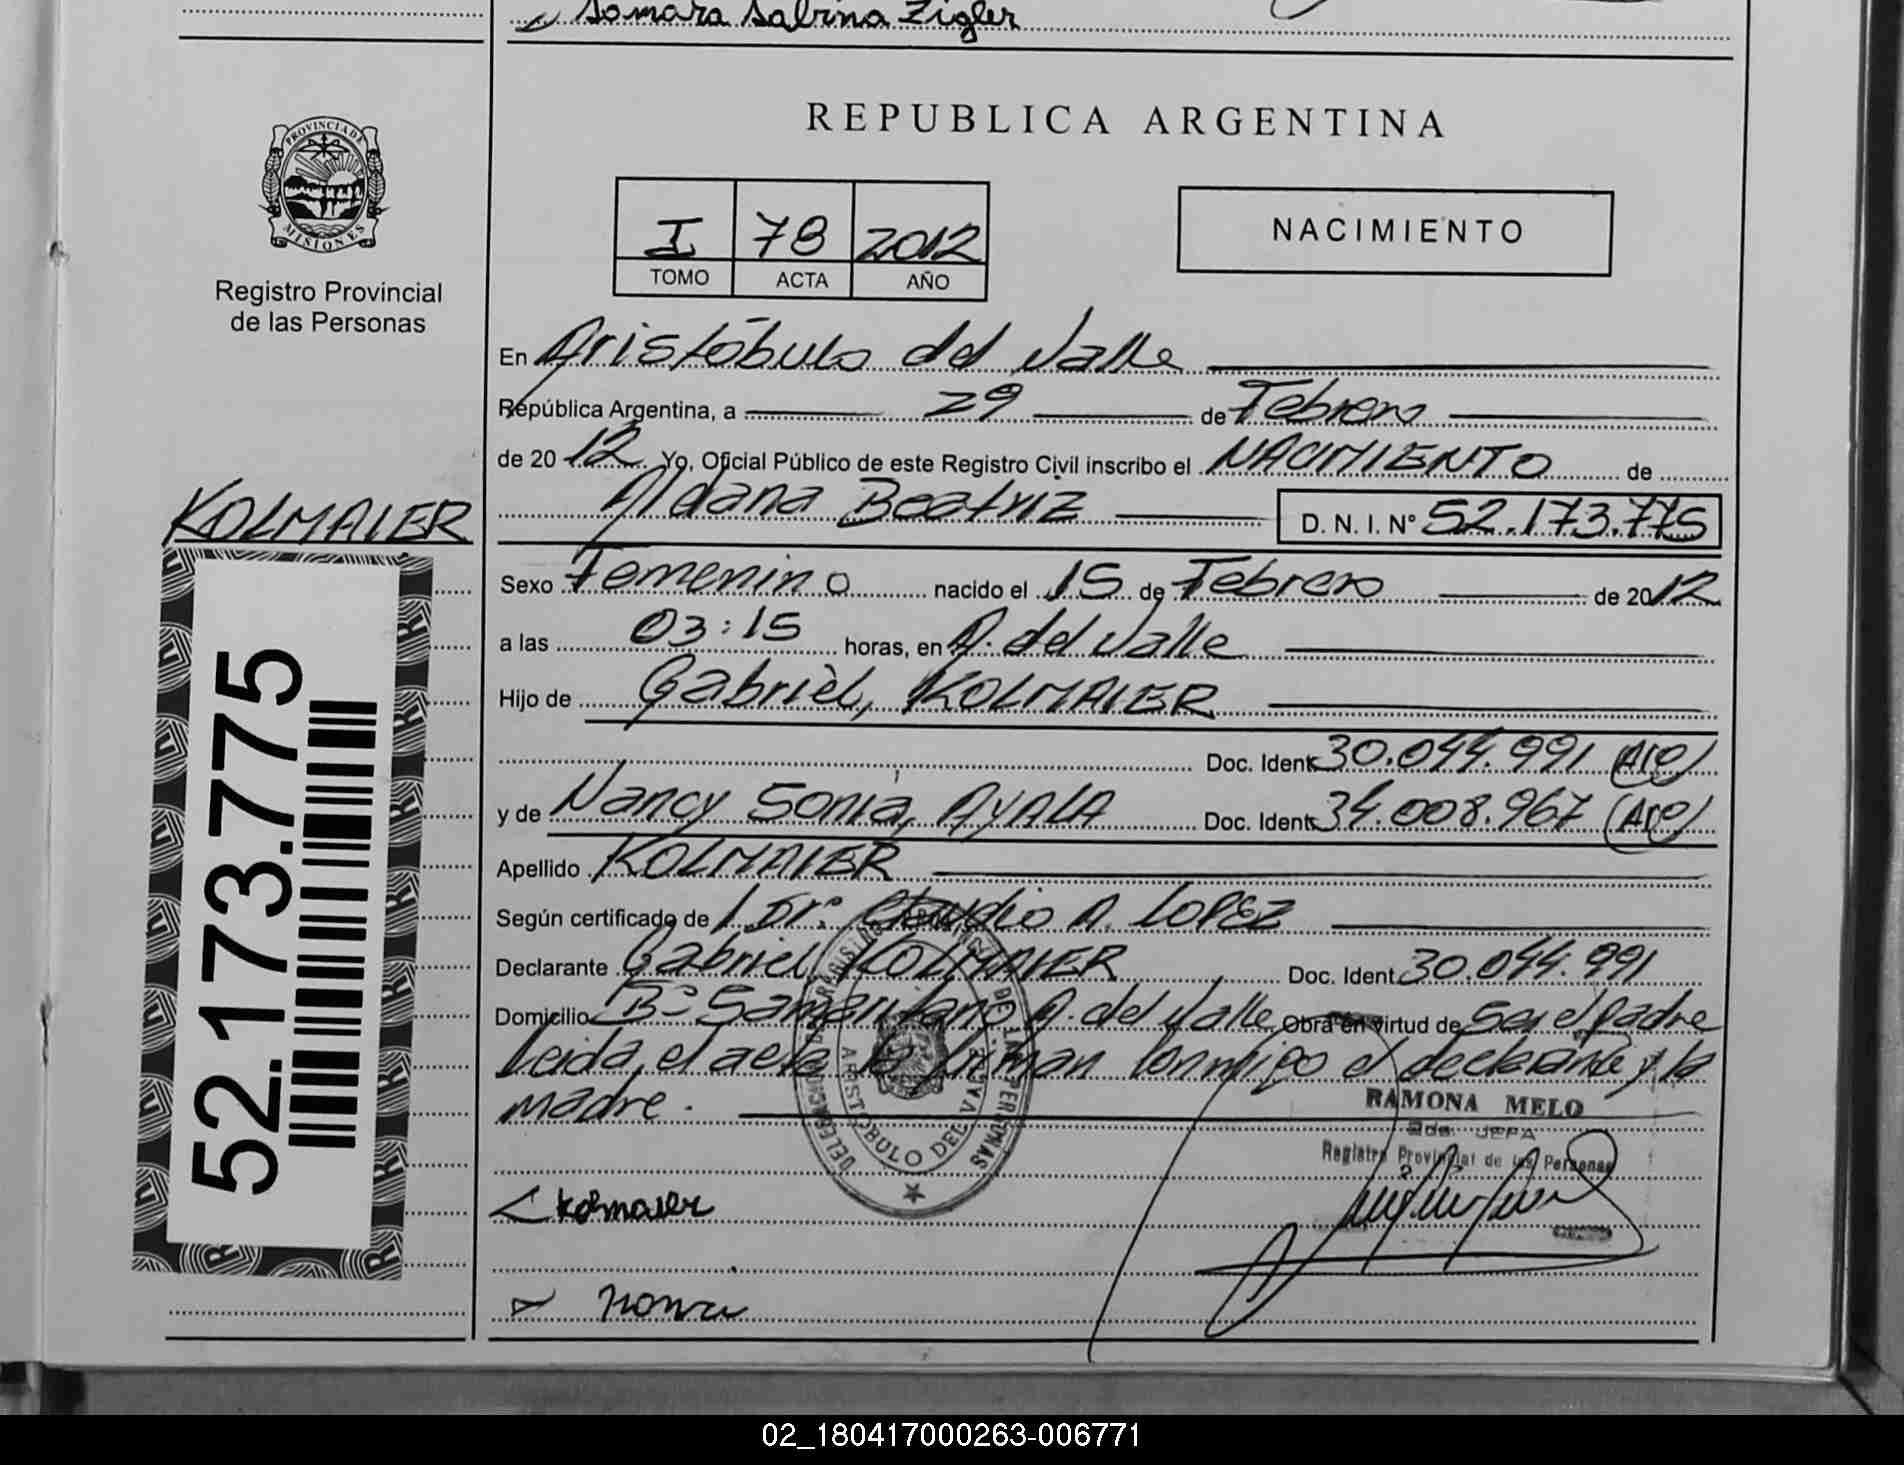 Samara Sabrina Zigler
PROVINCIA DE
MISIONES
Registro Provincial
de las Personas
KOLMAIER
52.173.775
REPUBLICA ARGENTINA
I 78 2012
TOMO ACTA AÑO
NACIMIENTO
En Aristóbulo del Valle
República Argentina, a 29 de Febrero
de 2012 Yo, Oficial Público de este Registro Civil inscribo el NACIMIENTO de
Aldana Beatriz D. N. I. Nº 52.173.775
Sexo Femenino nacido el 15 de Febrero de 2012
a las 03:15 horas, en A. del Valle
Hijo de Gabriel, KOLMAIER
Doc. Ident 30.044.991 (Arg)
y de Nancy Sonia, AYALA Doc. Ident 34.008.967 (Arg)
Apellido KOLMAIER
Según certificado de Dr. Claudio A. LOPEZ
Declarante Gabriel KOLMAIER Doc. Ident 30.044.991
Domicilio Bº Samaritano A. del Valle Obra en virtud de Ser el padre
Leida, el acta la firman conmigo el declarante y la
madre.
ARISTOBULO DEL VALLE
RAMONA MELO
2da. JEFA
Registro Provincial de las Personas
Kolmaier
02_180417000263-006771